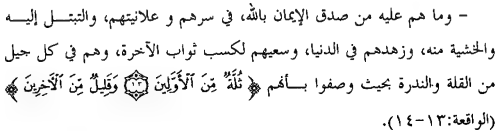 – وما هم عليه من صدق الإيمان بالله، في سرهم و علانيتهم، والتبتل إليه
والخشية منه، وزهدهم في الدنيا، وسعيهم لكسب ثواب الآخرة، وهم في كل جيل
من القلة والندرة بحيث وصفوا بأنهم ﴿ ثُلَّةٌ مِّنَ ٱلْأَوَّلِينَ ۝١٣ وَقَلِيلٌ مِّنَ ٱلْآخِرِينَ ﴾
(الواقعة:١٣-١٤).